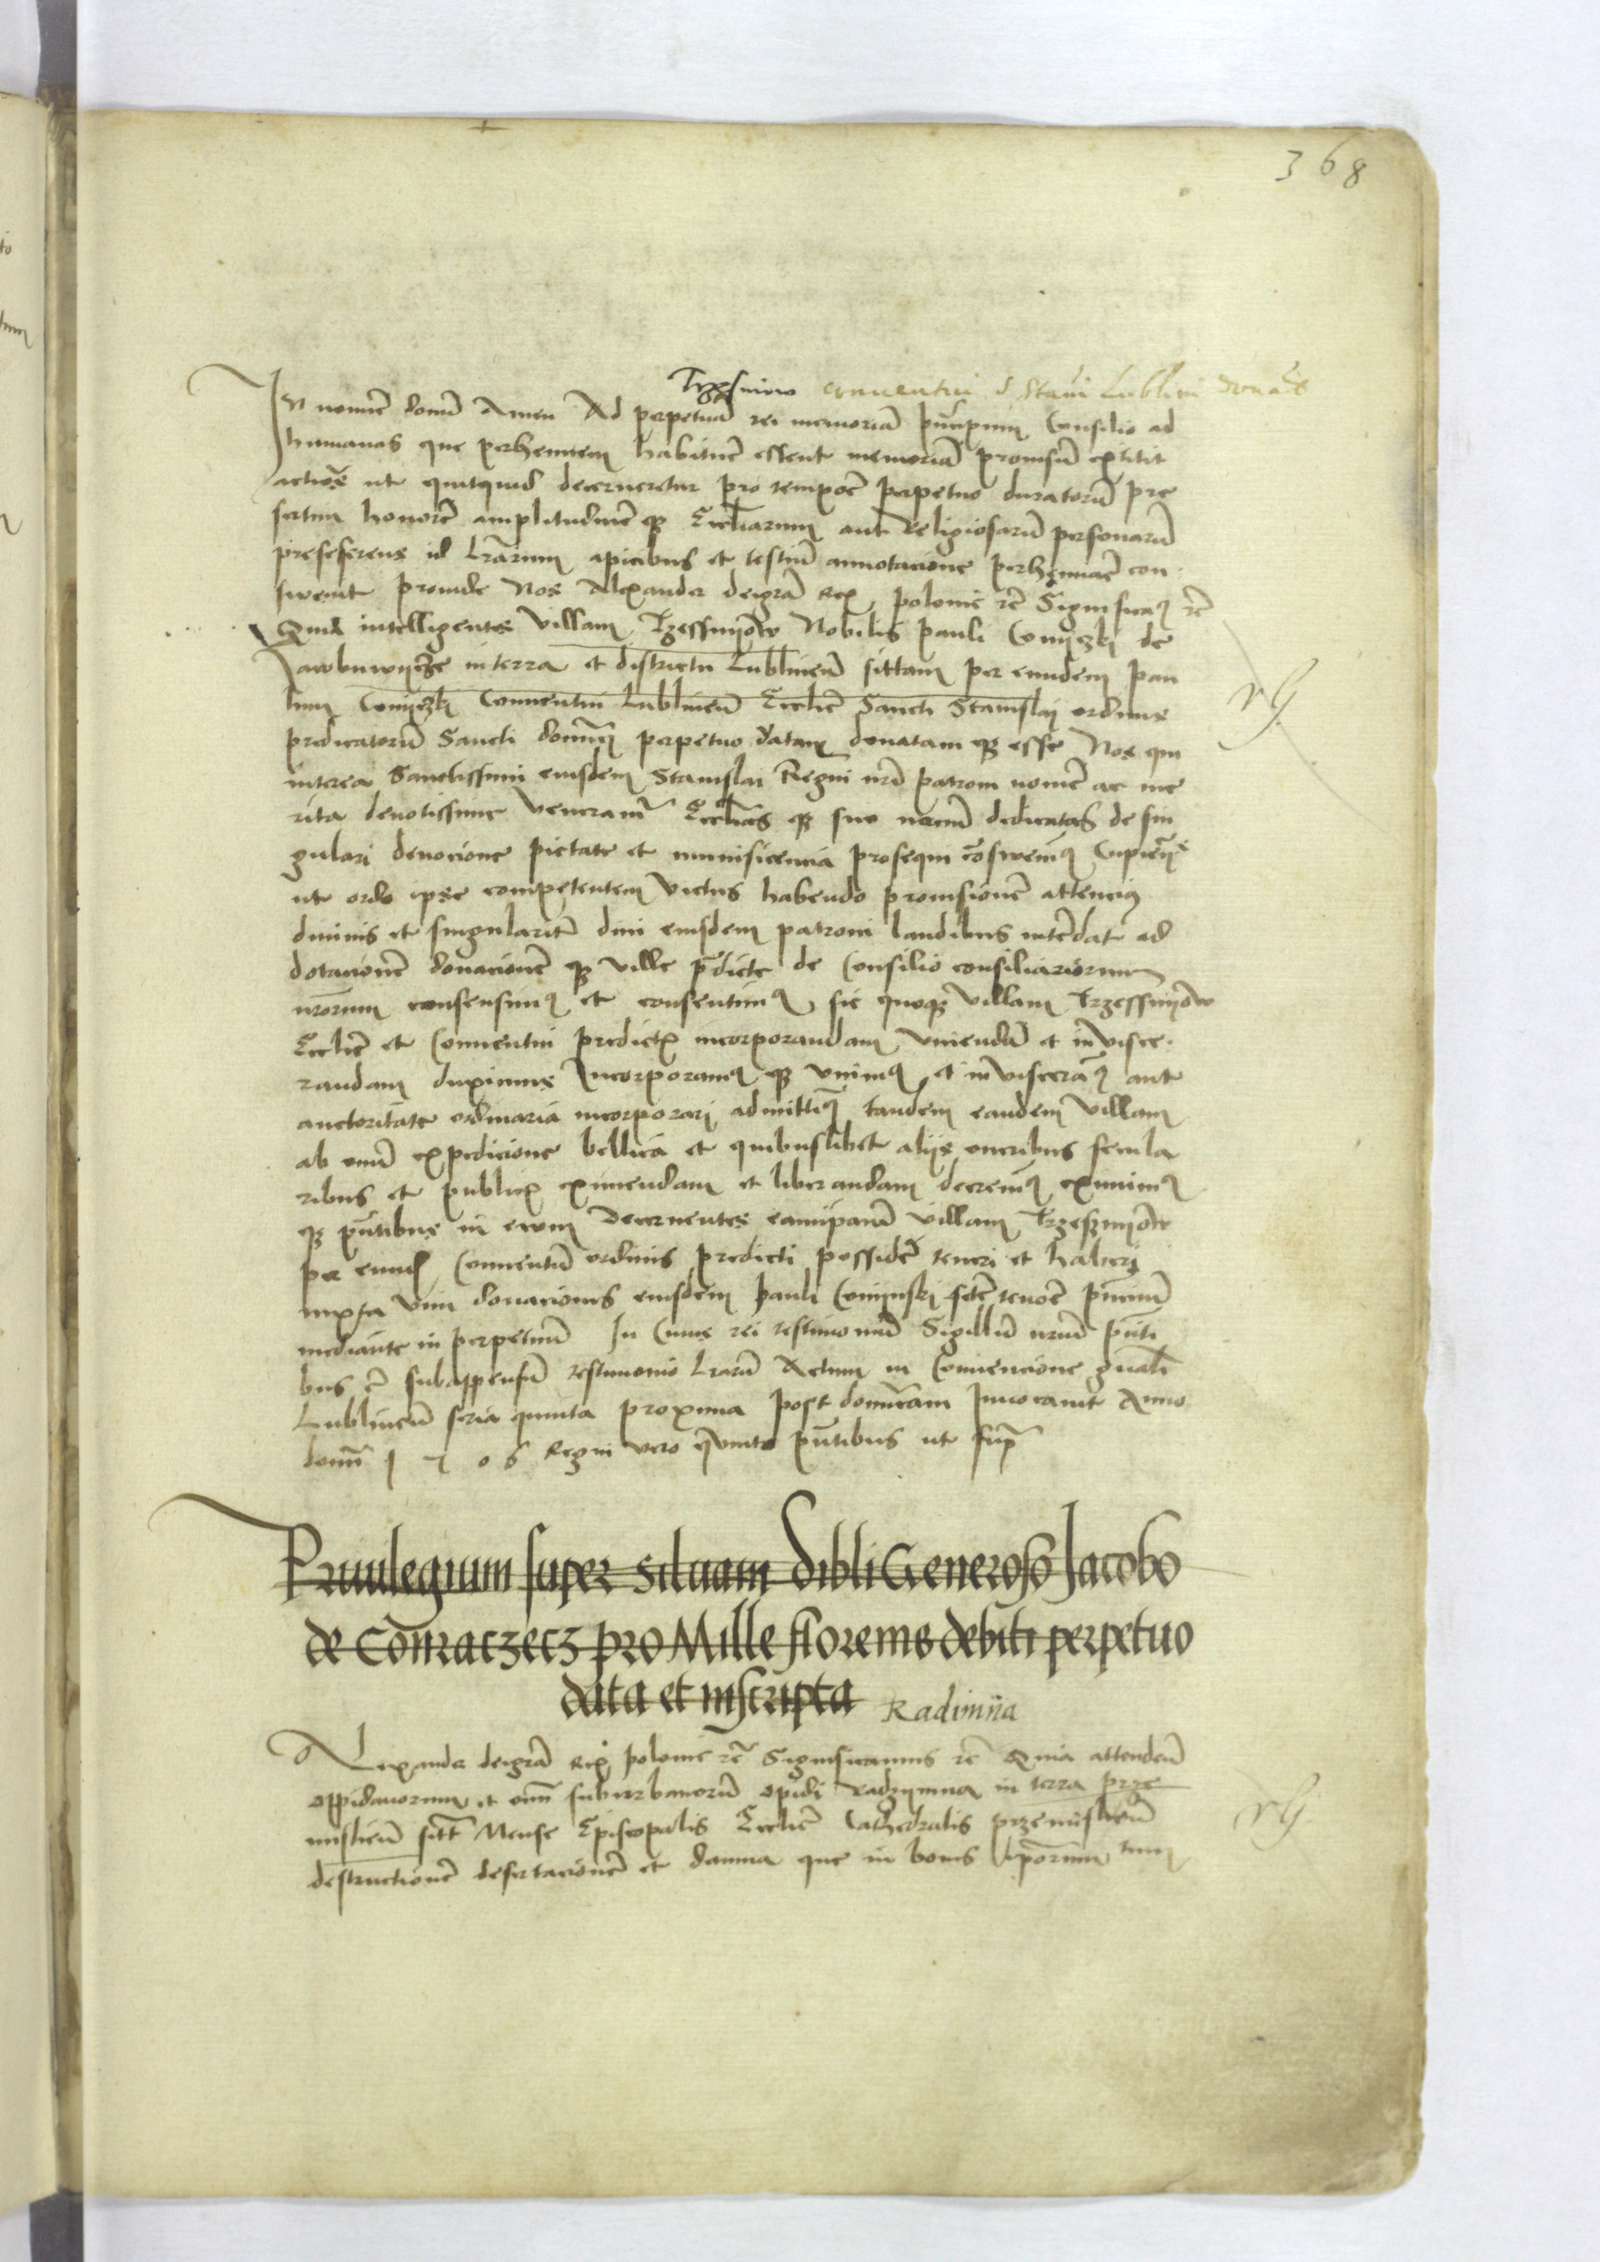 368
Trzesniow conuentui S Stani Lublini donacio
In nomine domi Amen Ad perpetuam rei memoriam principum Consilio ad
humanas que perhennem habiture essent memoriam promsum extitit
actiones ut quitquid decerneretur pro tempore perpetuo duratorum pre
sertim honorem amplitudinem qz Eccliarum aut Religiosarum personarum
preseferens id lrarum apicibus et testium annotacione perhennare con
sweuit proinde Nos Alexander dei gra Rex polonie etc Significamus etc
Quia intelligentes villam Trzessnyow Nobilis pauli Comyczky de
Jawbuwycze in terra et districtu Lublinen sittam per eundem pau
lum Comyczki Conuentui Lublinen Ecclie Sancti Stanislaj ordinis
predicatorum Sancti dominici perpetuo datam donatam qz esse Nos qui
interea Sanctissimi eiusdem Stanislai Regni nri patroni nomen ac me
rita deuotissime veneramur Ecclias qz suo nomini dedicatas de sin
gulari deuocione pietate et munificencia prosequi consweuimus Cupientes
ut ordo ipse competentem victus habendo prouisionem attencius
diuinis et singulariter diui eiusdem patroni laudibus intendat ad
dotacionem donacionem qz ville predicte de Consilio consiliariorum
nrorum consensimus et consentimus sic quoqz villam Trzessnyow
Ecclie et Conuentui predictis incorporandam vniendam et inuisce
randam duximus Incorporamus qz vnimus et inuisceramus aut
auctoritate ordinaria incorporari admittimus tandem eandem villam
ab omni expedicione bellica et quibuslibet aliis oneribus secula
ribus et publicis eximendam et liberandam decreuimus eximimus
qz pntibus in ewum Decernentes eam villam Trzesznyow
per eundem Conuentum ordinis predicti possideri teneri et haberi
iuxta vim donacionis eiusdem pauli Comynski
mediante in perpetuum In Cuius rei testimonium Sigillum nrum pnti
bus est subappensum testimonio lrarum Actum in Conuencione gnali
Lublinen feria quinta proxima post dominicam Inuocauit Anno
domini 1506 Regni vero quinto pntibus ut supra
Priuilegium super siluam Dibli Generoso Jacobo
de Comraczecz pro Mille florenis debiti perpetuo
data et inscripta Radimna
Alexander dei gra Rex polonie etc Significamus etc Quia attenden
oppidanorum et omni suburbanorum opidi radzymna in terra prze
mislien sitt Mense Episcopalis Ecclie Cathedralis przemislien
destructionem desertacionem et damna que in bonis ipsorum tum
rG
rG